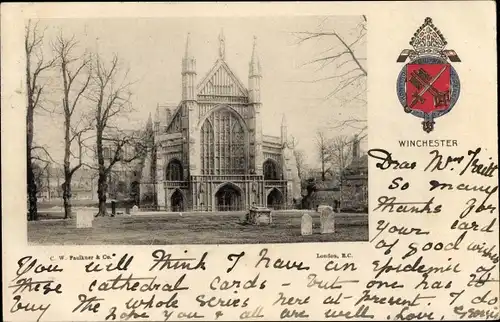 WINCHESTER
Dear Mrs Truit
So many
Thanks for
Your card
of good wishes
C. W. Faulkner & Co.
London, E.C.
You will think I have an Epidemic of
These cathedral cards - but one has to
buy the whole series here at present. I do
hope you & all are well. love, Georgie